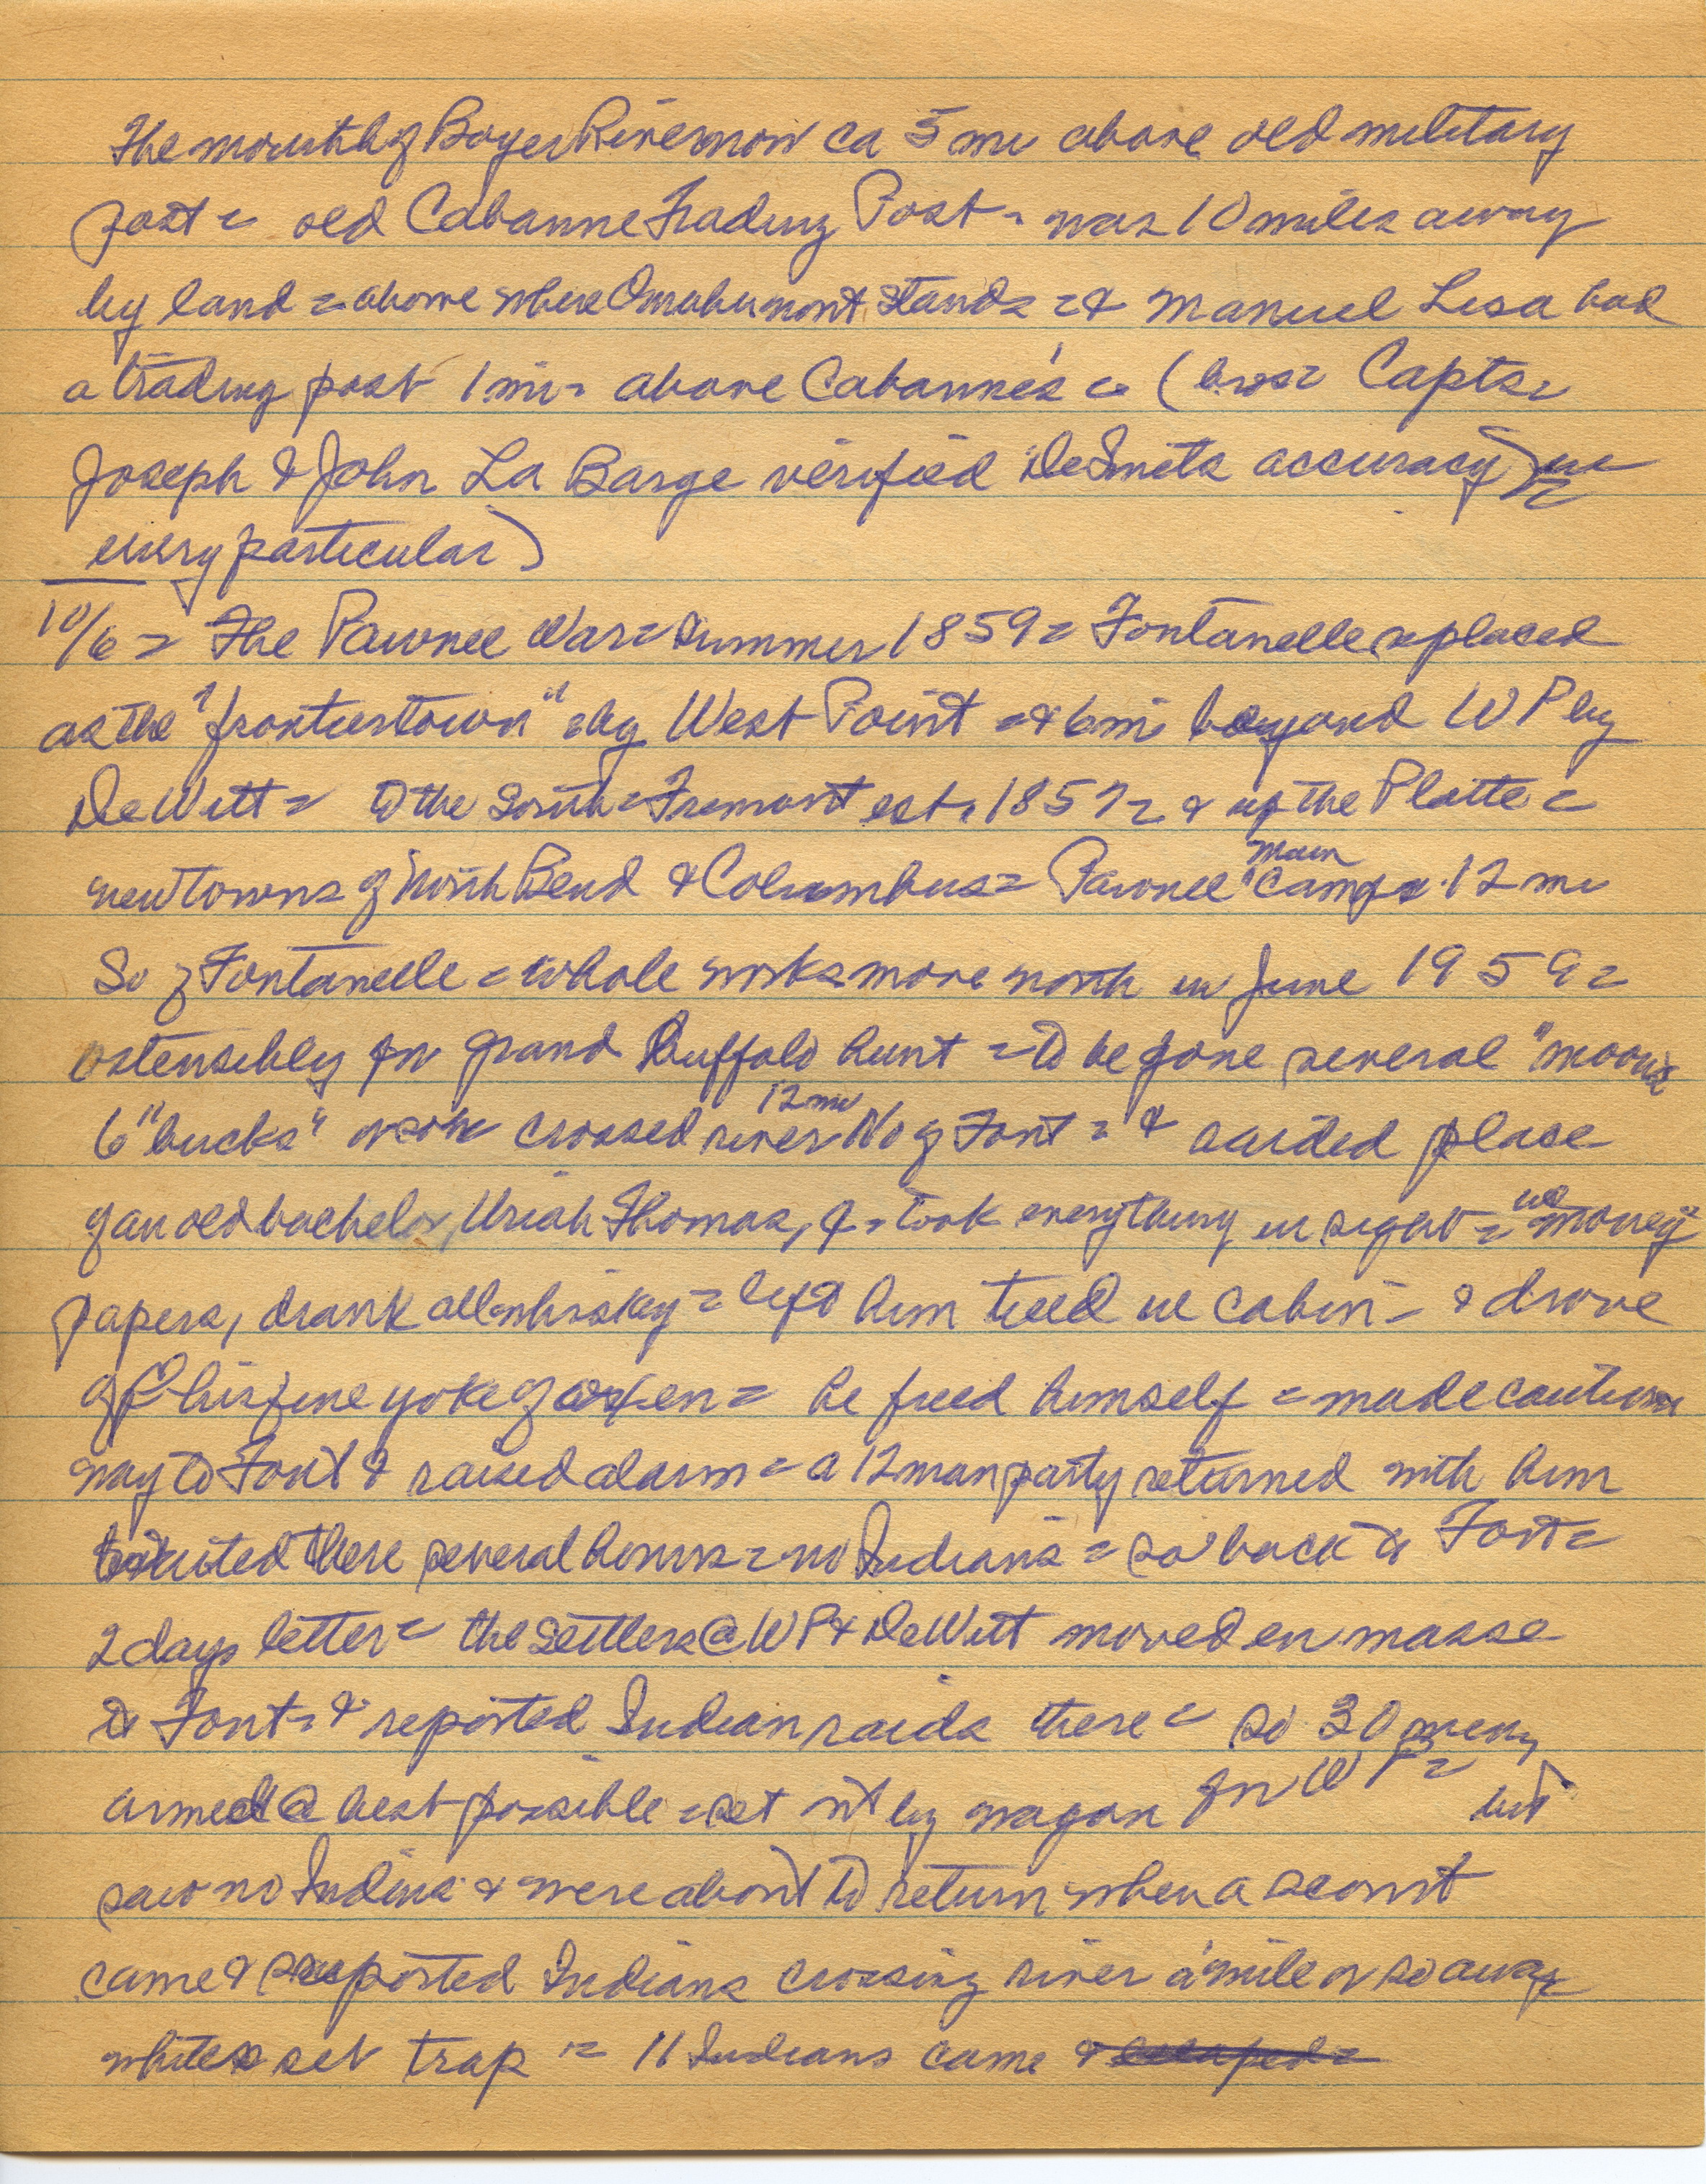 The mouth of Boyer River now ca 5 mi above old military
post = old Cabanne Trading Post = was 10 miles away
by land = above where Omaha now stands = & Manuel Lisa had
a trading post 1 mi = above Cabanne's = (bros = Capts =
Joseph & John La Barge verified DeSmets accuracy) in
every particular)
10/6 = The Pawnee War = Summer 1859 = Fontanelle replaced
as the "frontiertown" = by West Point = & 6 mi beyond WP by
DeWitt = to the South = Fremont est. 1857 = & up the Platte =
new towns of North Bend & Columbus = Pawnee "main camp 12 mi
So of Fontanelle = whole works move north in June 1959 =
ostensibly for grand Buffalo hunt = to be gone several "moons
6 "bucks" or so crossed river 12 mi No of Font = & raided place
of an old bachelor, Uriah Thomas, & = took everything in sight = money
papers, drank all whiskey = left him tied in cabin = & drove
off his fine yoke of oxen = he freed himself = made cautious
way to Font & raised alarm = a 12 man party returned with him
waited there several hours = no Indians = so back to Font =
2 days letter = the settlers @ WP & DeWitt moved en masse
to Font = & reported Indian raids there = so 30 men,
armed @ best possible = set out by wagon for WP = but
saw no Indins & were about to return when a scout
came & reported Indians crossing river a mile or so away
whites set trap = 11 Indians came & escaped =